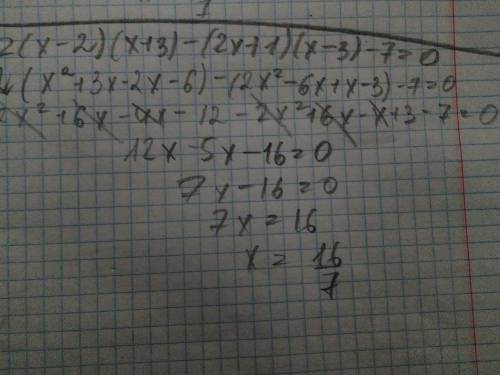 2(x-2)(x+3)-(2x+1)(x-3)-7=0
2(x²+3x-2x-6)-(2x²-6x+x-3)-7=0
2x²+6x-4x-12-2x²+6x-x+3-7=0
12x-5x-16=0
7x-16=0
7x=16
x=16/7